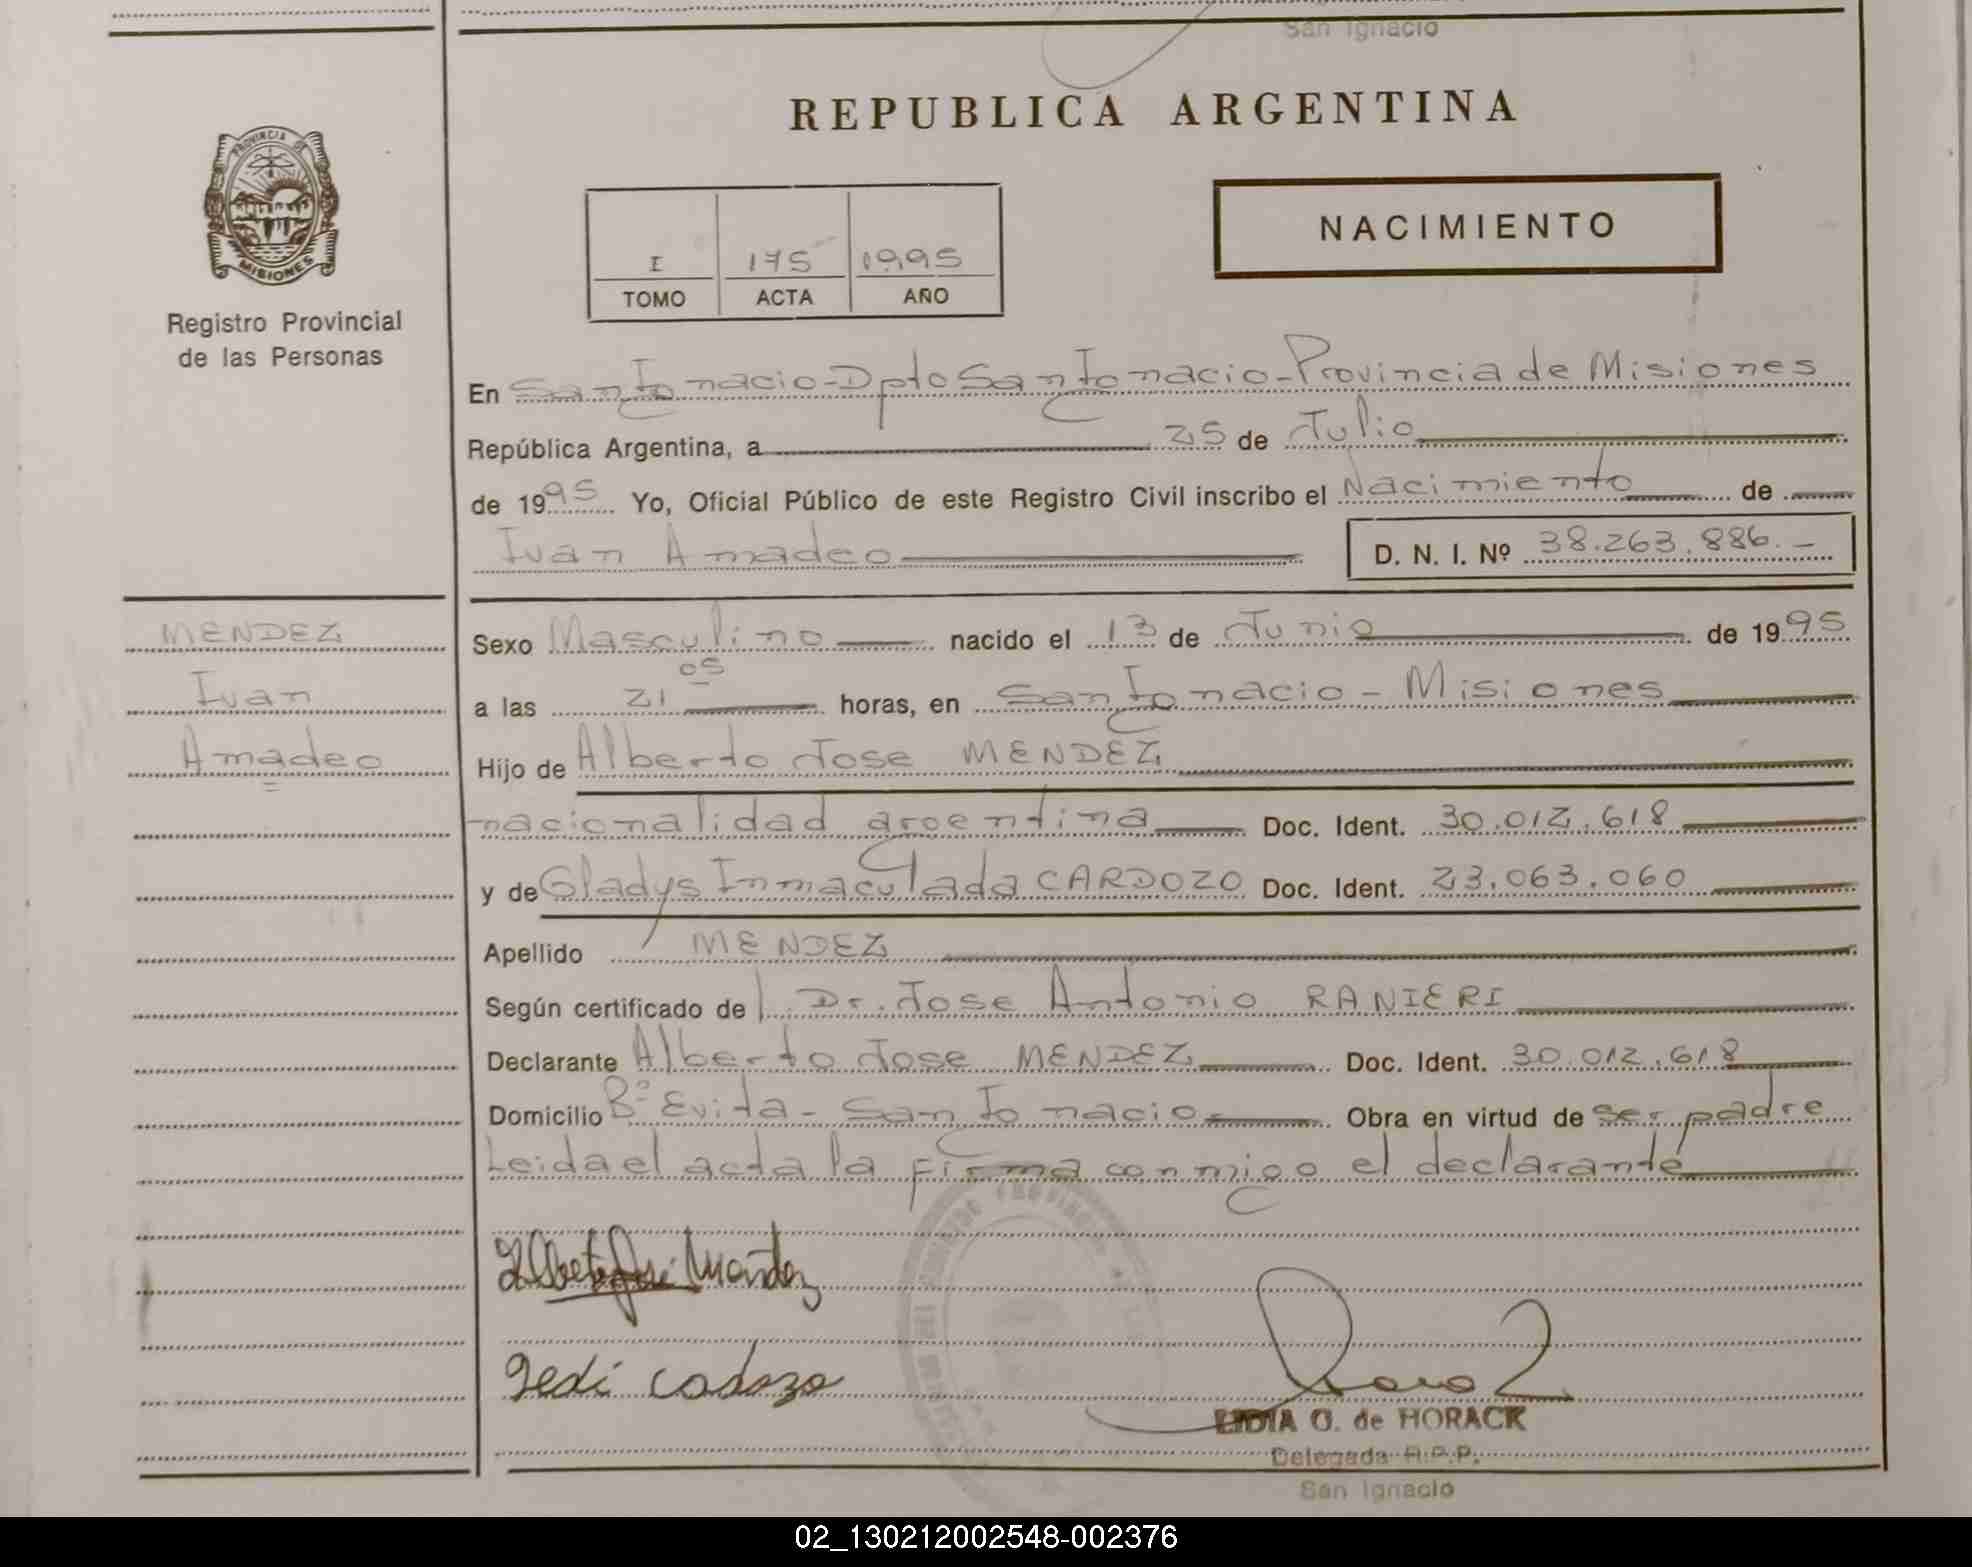 San Ignacio
PROVINCIA DE
MISIONES
Registro Provincial
de las Personas
REPUBLICA ARGENTINA
NACIMIENTO
I 175 1995
TOMO ACTA AÑO
En San Ignacio - Dpto San Ignacio - Provincia de Misiones
República Argentina, a 25 de Julio
de 1995 Yo, Oficial Público de este Registro Civil inscribo el Nacimiento de
Ivan Amadeo D. N. I. Nº 38.263.886.-
MENDEZ
Ivan
Amadeo
Sexo Masculino nacido el 13 de Junio de 1995
a las 21 05 horas, en San Ignacio - Misiones
Hijo de Alberto Jose MENDEZ
nacionalidad argentina Doc. Ident. 30.012.618
y de Gladys Inmaculada CARDOZO Doc. Ident. 23.063.060
Apellido MENDEZ
Según certificado de Dr. Jose Antonio RANIERI
Declarante Alberto Jose MENDEZ Doc. Ident. 30.012.618
Domicilio Bº Evita - San Ignacio Obra en virtud de ser padre
Leida el acta la firma conmigo el declarante
Alberto José Mendez
LIDIA O. de HORACK
Delegada R.P.P.
San Ignacio
02_130212002548-002376